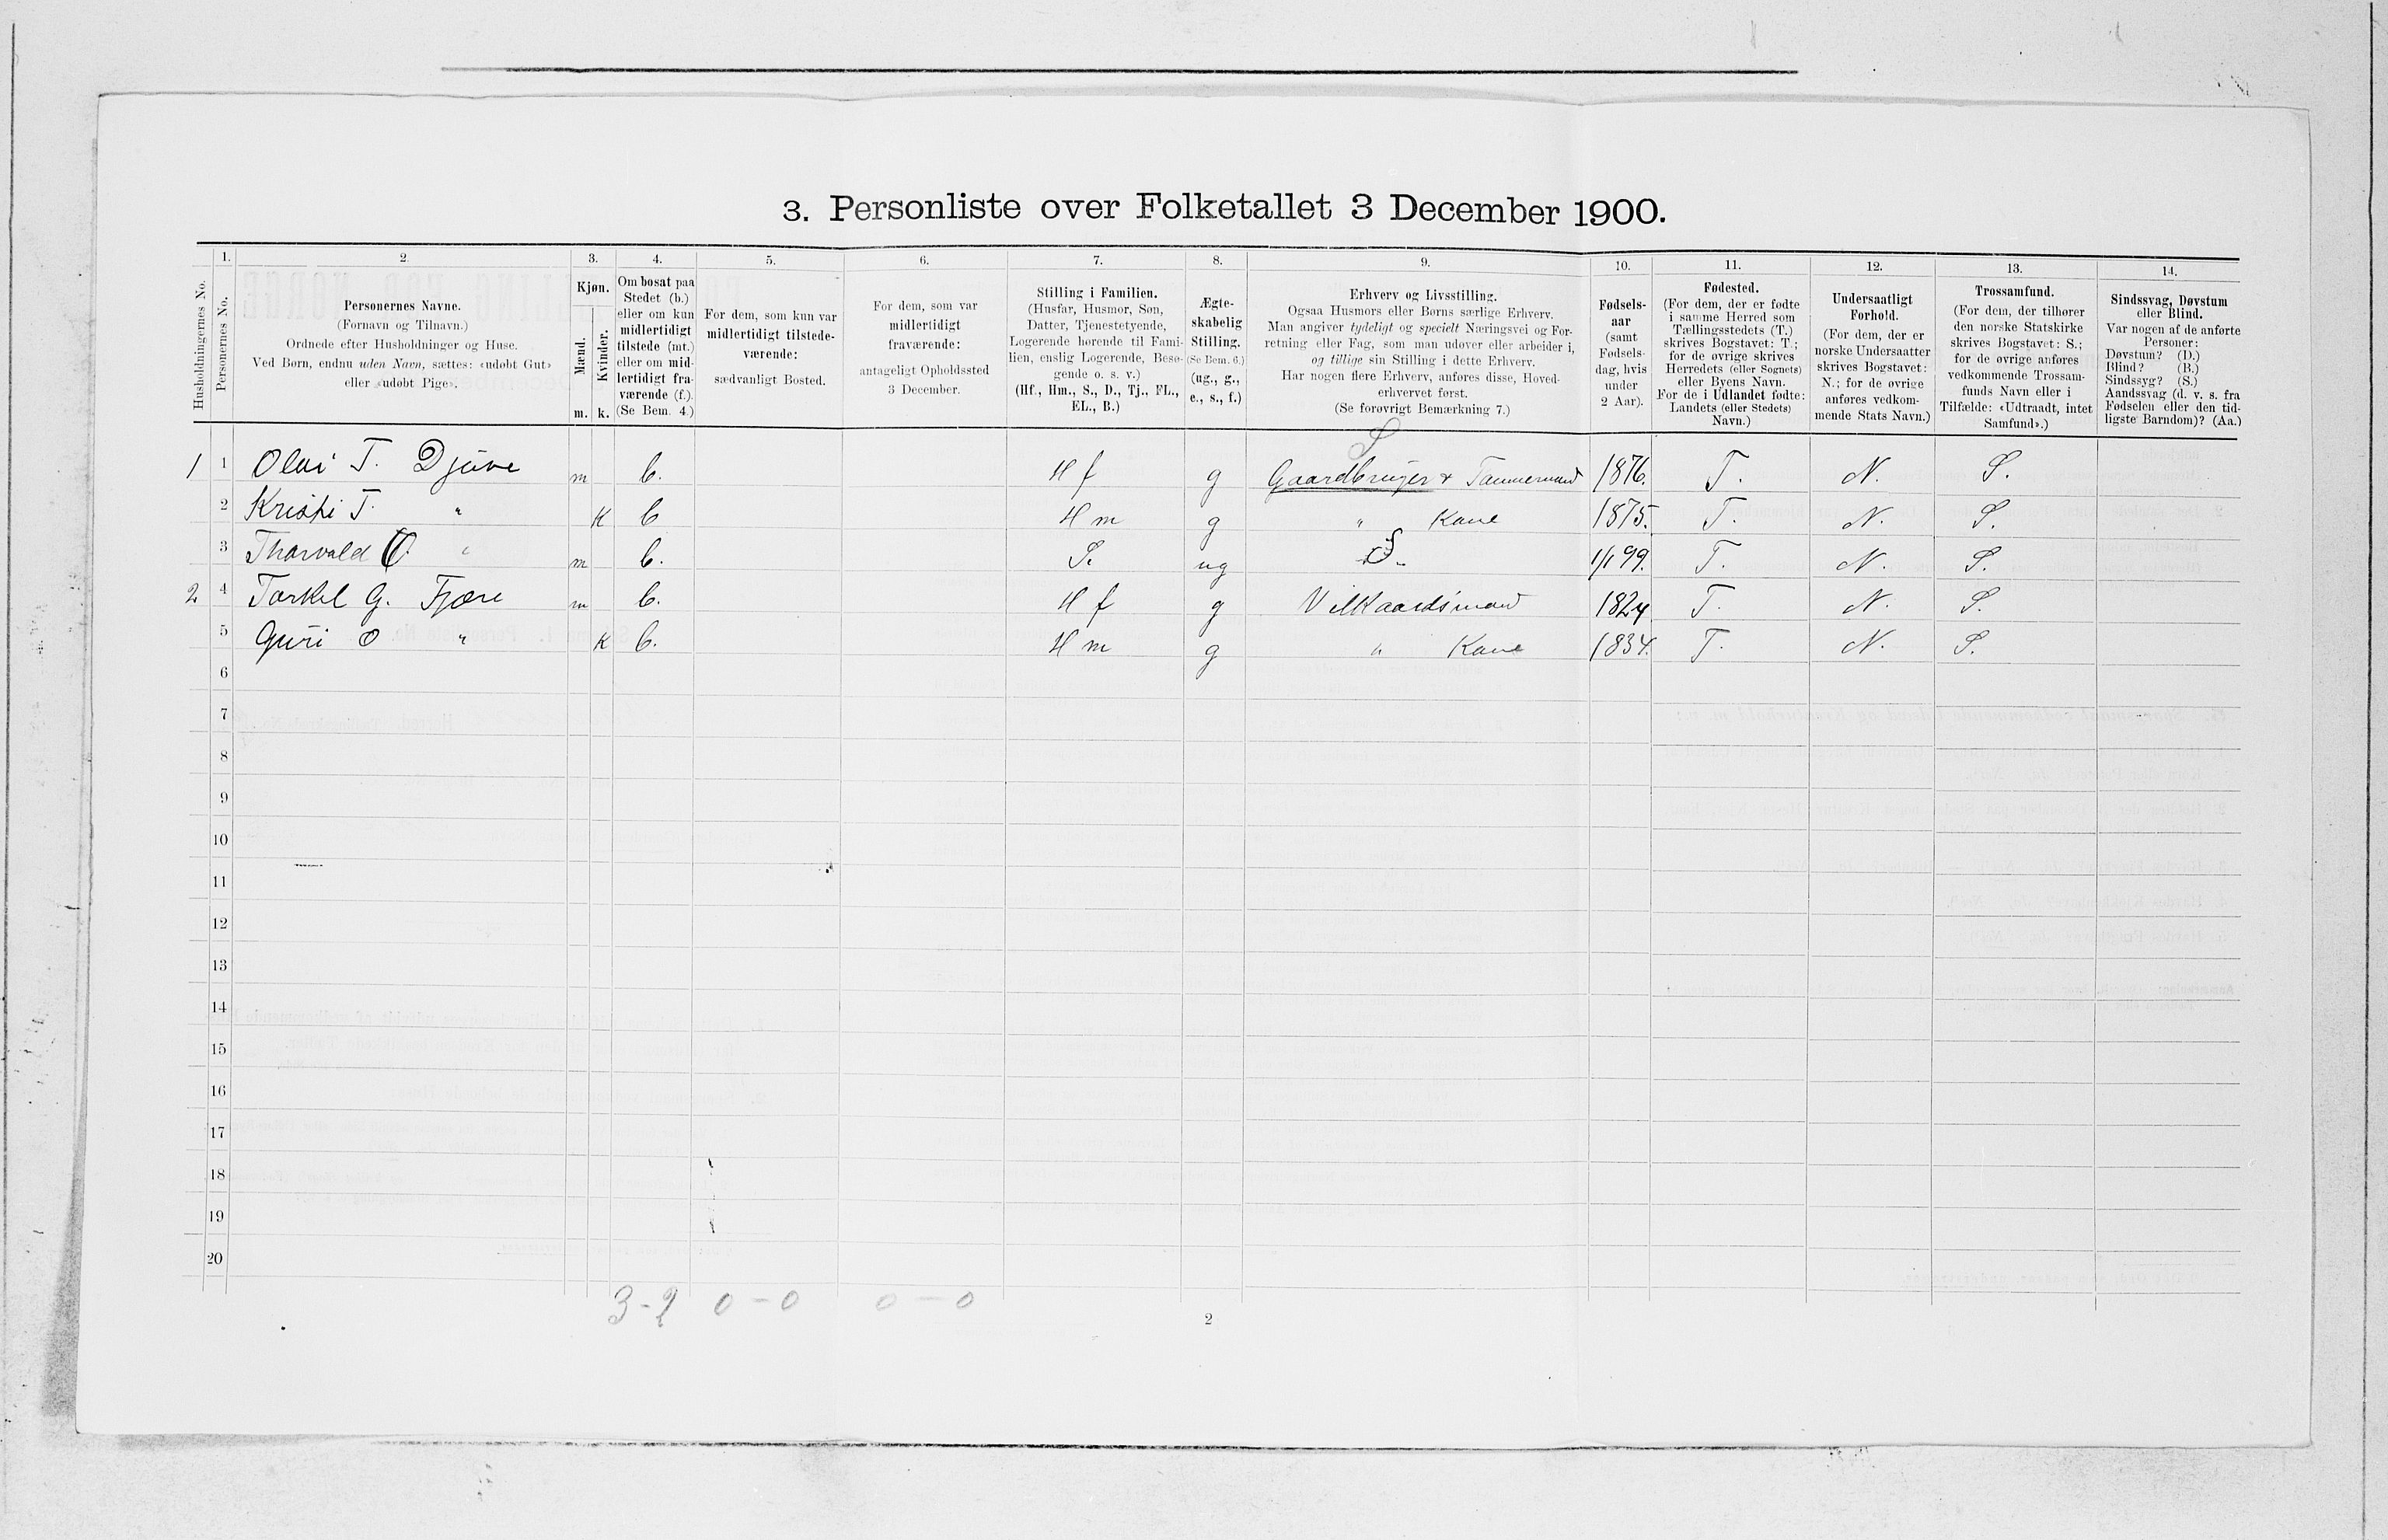 3. Personliste over Folketallet 3 December 1900.
Husholdningernes No.
1.
Personernes No.
2.
Personernes Navne.
(Fornavn og Tilnavn.)
Ordnede efter Husholdninger og Huse.
Ved Børn, endnu uden Navn, sættes: «udøbt Gut»
eller «udøbt Pige».
3.
Kjøn.
Mænd.
Kvinder.
m. k.
4.
Om bosat paa
Stedet (b.)
eller om kun
midlertidigt
tilstede (mt.)
eller om mid-
lertidigt fra-
værende (f.).
(Se Bem. 4.)
5.
For dem, som kun var
midlertidigt tilstede-
værende:
sædvanligt Bosted.
6.
For dem, som var
midlertidigt
fraværende:
antageligt Opholdssted
3 December.
7.
Stilling i Familien.
(Husfar, Husmor, Søn,
Datter, Tjenestetyende,
Logerende hørende til Fami-
lien, enslig Logerende, Besø-
gende o. s. v.)
(Hf., Hm., S., D., Tj., FL.,
EL., B.)
8.
Ægte-
skabelig
Stilling.
(Se Bem. 6.)
(ug., g.,
e., s., f.)
9.
Erhverv og Livsstilling.
Ogsaa Husmors eller Børns særlige Erhverv.
Man angiver tydeligt og specielt Næringsvei og For-
retning eller Fag, som man udøver eller arbeider i,
og tillige sin Stilling i dette Erhverv.
Har nogen flere Erhverv, anføres disse, Hoved-
erhvervet først.
(Se forøvrigt Bemærkning 7.)
10.
Fødsels-
aar
(samt
Fødsels-
dag, hvis
under
2 Aar).
11.
Fødested.
(For dem, der er fødte
i samme Herred som
Tællingsstedets (T.)
skrives Bogstavet: T.;
for de øvrige skrives
Herredets (eller Sognets)
eller Byens Navn.
For de i Udlandet fødte:
Landets (eller Stedets)
Navn.)
12.
Undersaatligt
Forhold.
(For dem, der er
norske Undersaatter
skrives Bogstavet:
N.; for de øvrige
anføres vedkom-
mende Stats Navn.)
13.
Trossamfund.
(For dem, der tilhører
den norske Statskirke
skrives Bogstavet: S.;
for de øvrige anføres
vedkommende Trossam-
funds Navn eller i
Tilfælde: «Udtraadt, intet
Samfund».)
14.
Sindssvag, Døvstum
eller Blind.
Var nogen af de anførte
Personer:
Døvstum? (D.)
Blind? (B.)
Sindssyg? (S.)
Aandssvag (d. v. s. fra
Fødselen eller den tid-
ligste Barndom)? (Aa.)
S
1 1 Olav T. Djuve m b. Hf g Gaardbruger & Tømmermand 1876. T. N. S.
2 Kristi T. " K b Hm g " Kone 1875. T. N. S.
3 Thorvald O. " m b. S. ug S. 1/1 99. T. N. S.
2 4 Torkel G. Fjøre m b. Hf g Vilkaardsmand 1824 T. N. S.
5 Guri O " K b. Hm g " Kone 1834. T. N. S.
6
7
8
9
10
11
12
13
14
15
16
17
18
19
20
3-2 0-0 0-0
2